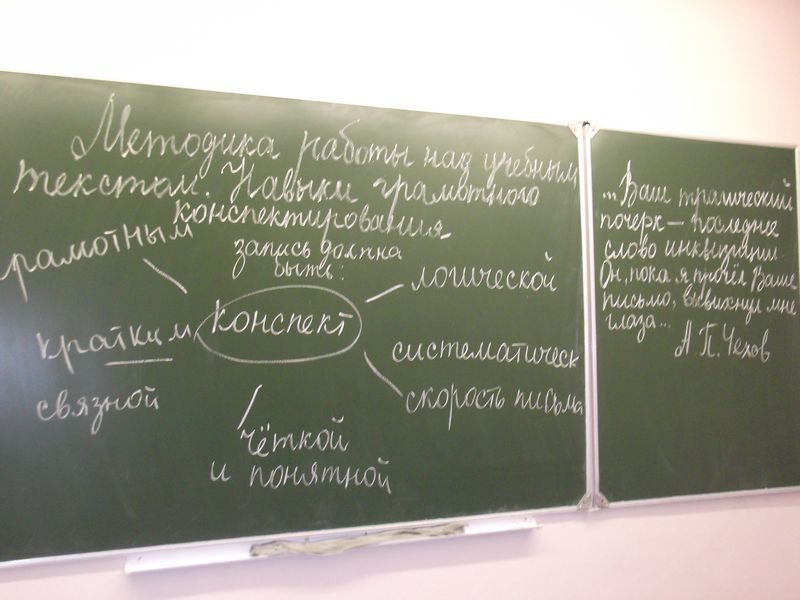 Методика работы над учебным
текстом. Навыки грамотного
конспектирования
запись должна
быть:
грамотным
логической
конспект
кратким
систематическ
связной
скорость письма
чёткой
и понятной
...Ваш трагический
почерк — последнее
слово инквизиции.
Он, пока я прочёл Ваше
письмо, вывихнул мне
глаза...
А.П. Чехов